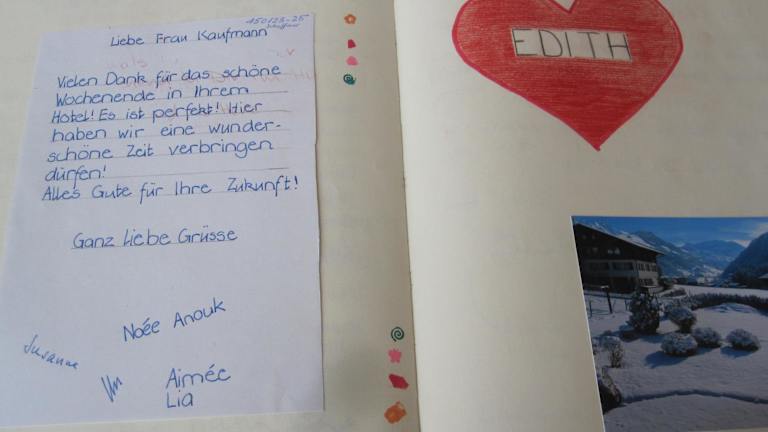 150123-25
Liebe Frau Kaufmann
Vielen Dank für das schöne
Wochenende in Ihrem
Hotel! Es ist perfekt! Hier
haben wir eine wunder-
schöne Zeit verbringen
dürfen!
Alles Gute für Ihre Zukunft!
Ganz liebe Grüsse
Noée Anouk
Susanne
Aimée
Lia
EDITH